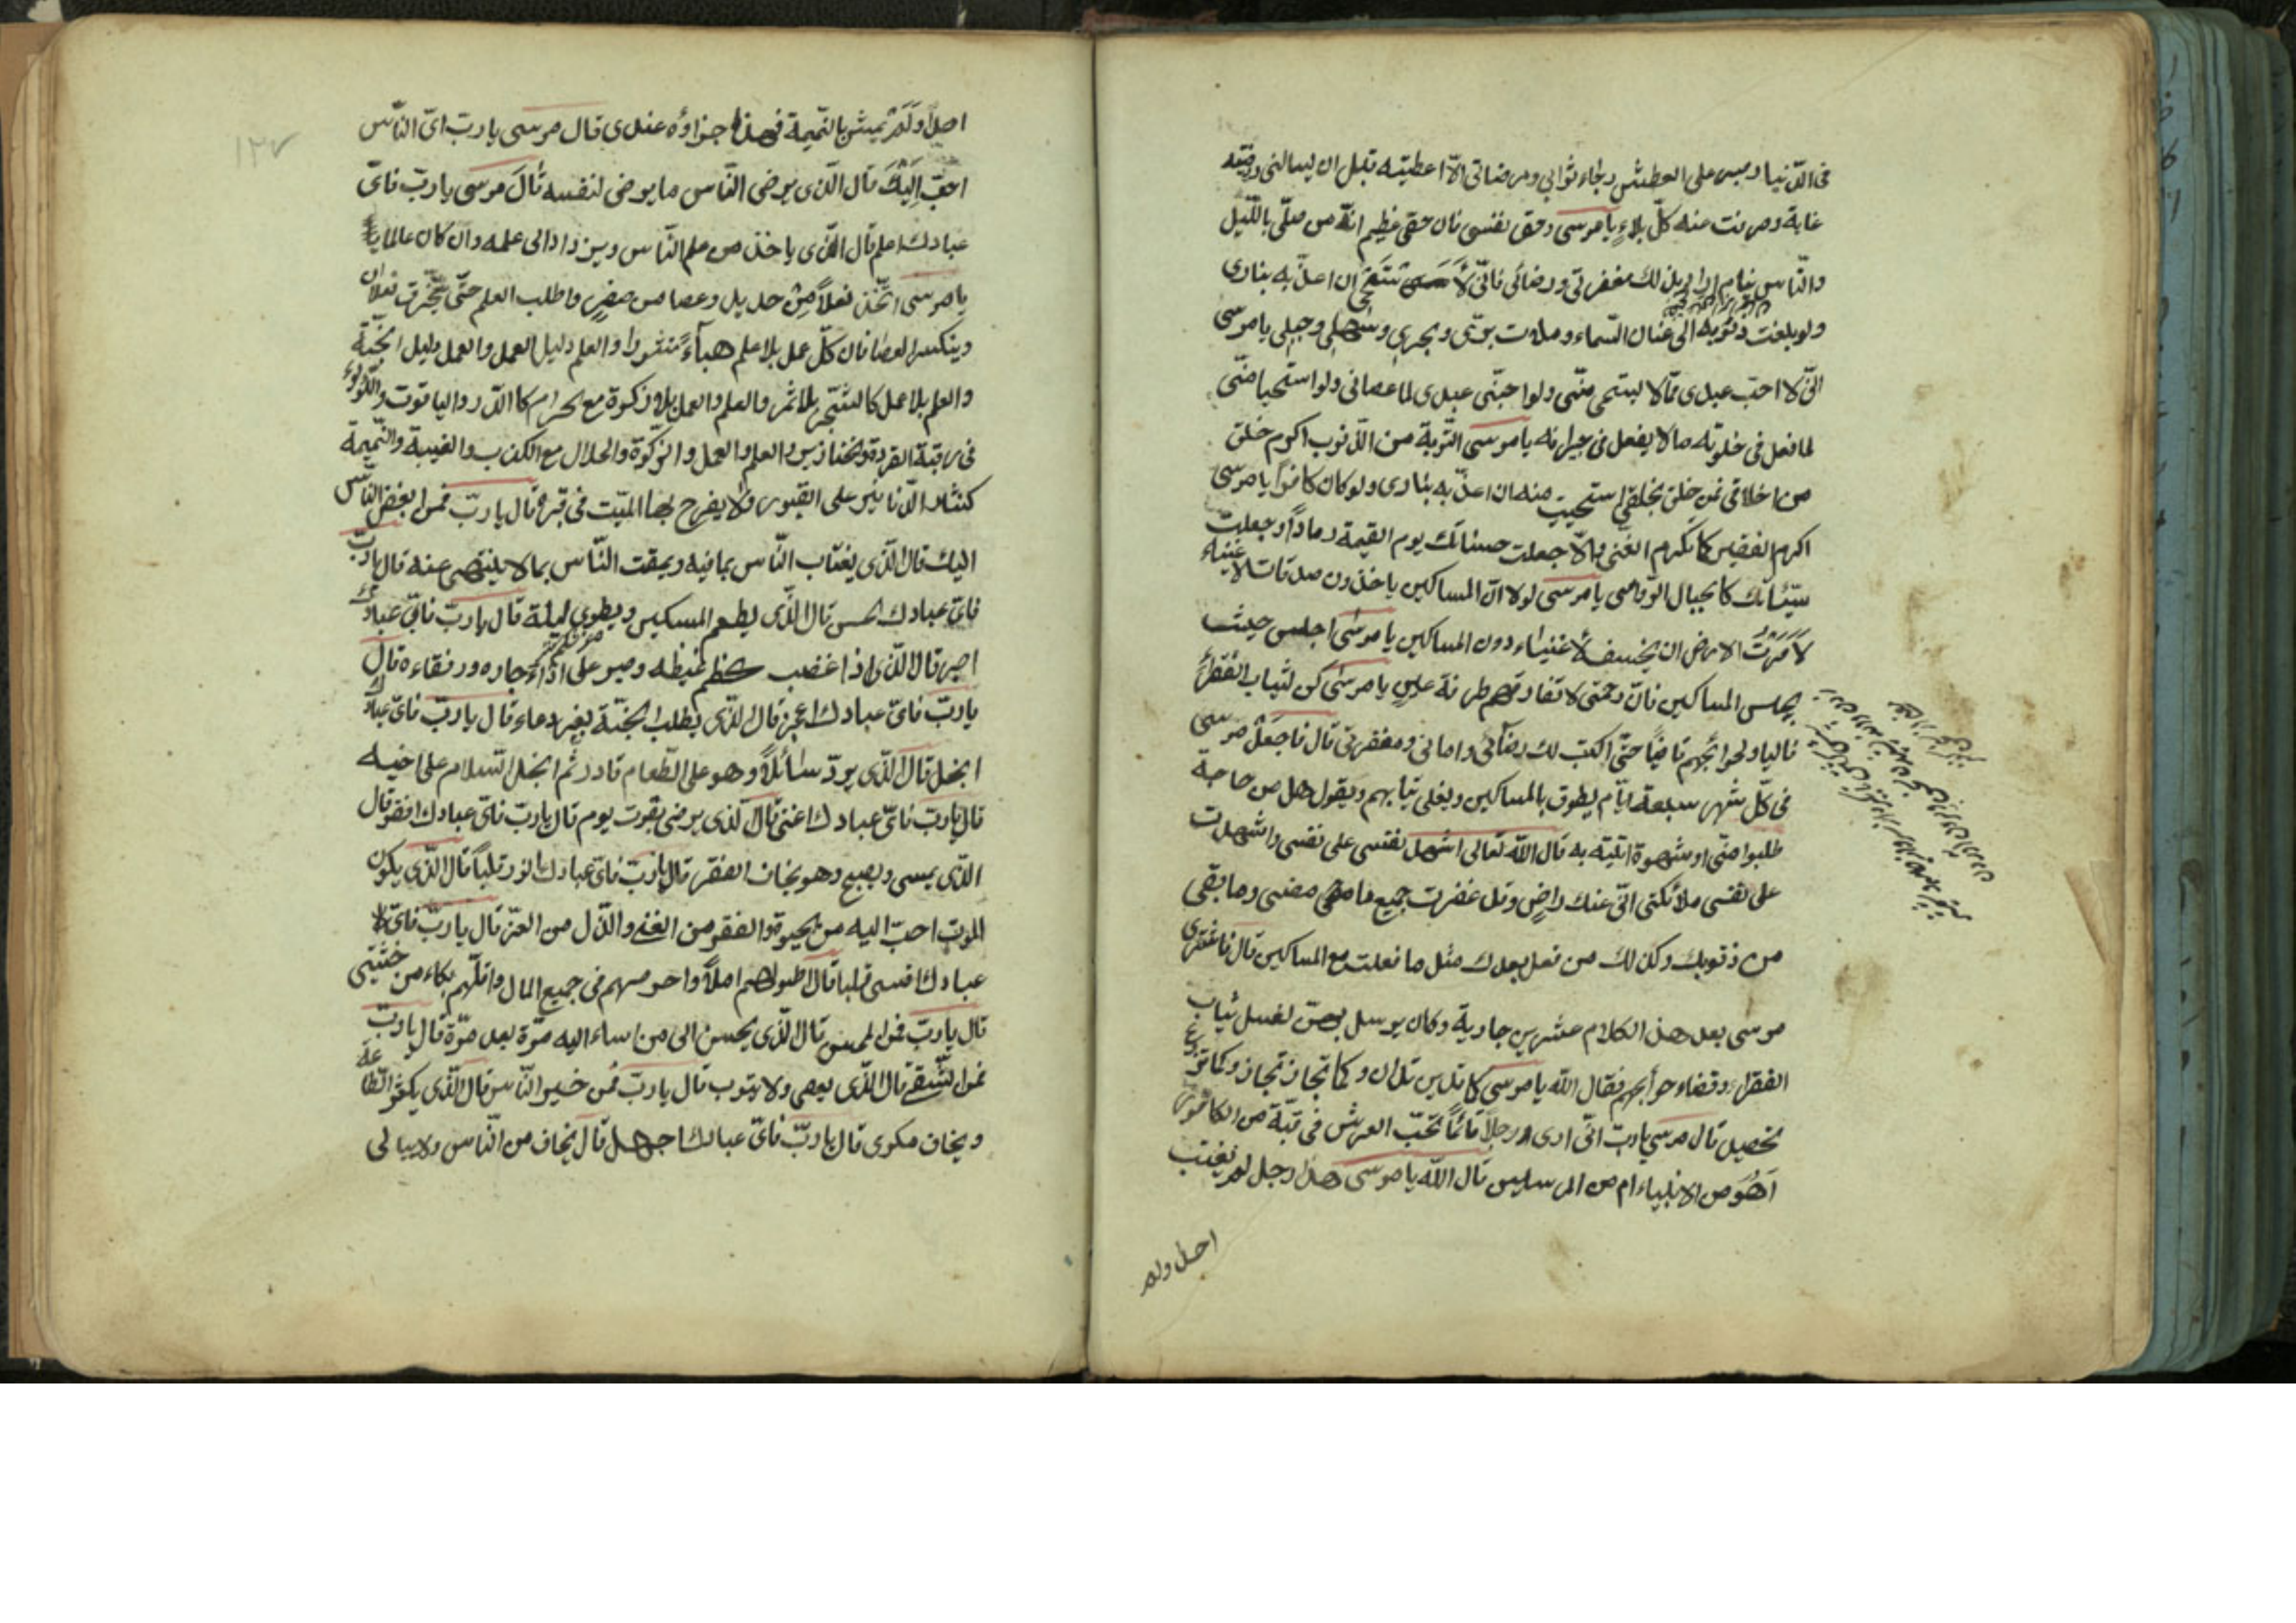 فى الدّنيا وصبر على العطش رجاء ثوابي ومرضاتى الّا اعطيته قبل ان يسالنى
غاية وصرفت عنه كلّ بلاءٍ يا موسى وحق نفسى فان حقى عظيم انّه من صلّى بالليل
والنّاس نيام اراد بذلك مغفرتى ورضائى فانّى لَأَستَحْيى ان اعذّبه بنارى
ولو بلغت ذنوبه الى عنان السّماء وملات برّى وبحرى وسهلى وجبلى يا موسى
انّى لا احبّ عبدى ممّا لا يستحى منّى ولو احبّنى عبدى لما عصانى ولو استحيا منّى
لما فعل فى خلوته ما لا يفعل فى جيرانه يا موسى التّوبة من الذّنوب اكرم خلق
من اخلاقى فمن خلق بخلقى استحييت منه ان اعذّبه بنارى ولو كان كافرًا يا موسى
اكرم الفقير كما تكرم الغنى والّا جعلت حسناتك يوم القيمة رمادًا وجعلت
سيّئاتك كالجبال الرّواسى يا موسى لولا انّ المساكين ياخذون صدقات الاغنياء
لَاَمَرْتُ الارض ان يخسف الاغنياء دون المساكين يا موسى اجلس حيث
يجلس المساكين فانّ رحمتى لا تفارقهم طرفة عينٍ يا موسى كن لثياب الفقراء
غاليا ولحوائجهم قاضيًا حتّى اكتب لك رضائى وامانى ومغفرتى قال فاجعل موسى
فى كلّ شهر سبعة ايّام يطوف بالمساكين ويغلى ثيابهم ويقول هل من حاجة
طلبوا منّى او شهوة اتيته به قال الله تعالى اشهد نفسى على نفسى واشهدت
على نفسى ملائكتى انّى عنك راضٍ وقد غفرت جميع ما مضى وما بقى
من ذنوبك وكذلك من فعل بعدك مثل ما فعلت مع المساكين قال فاشترى
موسى بعد هذا الكلام عشرين جارية وكان يرسل بهنّ لغسل ثياب
الفقراء وقضاء حوائجهم فقال الله يا موسى كما تدين تدان وكما تجاز تجاز وكما تزرع
تحصيل قال موسى يا ربّ انّى ارى رجلًا قائمًا تحت العرش فى قبّة من الكافور
اَهُوَ من الانبياء ام من المرسلين قال الله يا موسى هذا رجل لم يغتب
احدا ولم
١٢٧
اصلًا وَلَمْ يمش بالنّميمة فهذا جزاؤه عندى قال موسى يا ربّ اىّ النّاس
احبّ اِلَيْكَ قال الّذى يرضى النّاس ما يرضى لنفسه قال موسى يا ربّ فاىّ
عبادك اعلم قال الّذى ياخذ من علم النّاس ويزداد الى علمه وان كان عالما
يا موسى اتّخذ نعلًا من حديد وعصا من صفرٍ واطلب العلم حتّى تتخرّق نعلان
وينكسر العصا فان كلّ عمل بلا علم هباءً منثورا والعلم دليل العمل والعمل دليل الجنّة
والعلم بلا عمل كالشّجر بلا ثمر والعلم والعمل بلا زكوة مع الحرام كالدّر والياقوت واللّؤلوء
فى رقبة القردة والخنازير والعلم والعمل والزّكوة والحلال مع الكذب والغيبة والنّميمة
كنثار الدّنانير على القبور ولا يفرح بها الميّت فى قبره قال يا ربّ فمن ابغض النّاس
اليك قال الّذى يغتاب النّاس بما فيه ويمقت النّاس بما لا ينتهى عنه قال يا ربّ
فاىّ عبادك احسن قال الّذى يطعم المسكين ويطوى ليلة قال يا ربّ فاىّ عبادك
اصبر قال الّذى اذا غضب كظم غيظه وصبر على اذاء جاره ورفقاءه قال
يا ربّ فاىّ عبادك اعجز قال الّذى يطلب الجنّة بغير دعاء قال يا ربّ فاىّ عبادك
ابخل قال الّذى يردّ سائلًا وهو على الطّعام قادر ثم ابخل السّلام على اخيه
قال يا ربّ فاىّ عبادك اغنى قال الّذى يرضى بقوت يوم قال يا ربّ فاىّ عبادك افقر قال
الّذى يمسى ويصبح وهو يخاف الفقر قال يا ربّ فاىّ عبادك انور قلبًا قال الّذى يكون
الموت احبّ اليه من الحيوة والفقر من الغنى والذّل من العزّ قال يا ربّ فاىّ
عبادك اقسى قلبا قال اطولهم املًا واحرصهم فى جميع المال واقلّهم بكاء من خشيتى
قال يا ربّ فمن المحسن قال الّذى يحسن الى من اساء اليه مرّة بعد مرّة قال يا ربّ
فمن الشّقى قال الّذى يعصى ولا يتوب قال يا ربّ فمن خير النّاس قال الّذى يكثر الطّاعة
ويخاف مكرى قال يا ربّ فاىّ عبادك اجهل قال يخاف من النّاس ولا يبالى